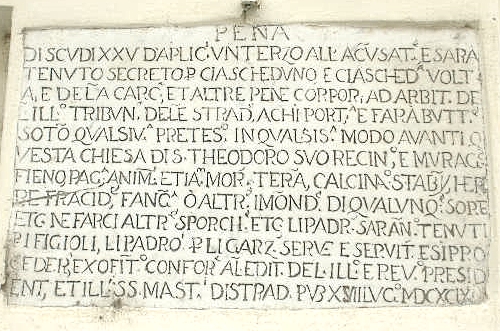 PENA
DI SCVDI XXV D'APLIC' VN TERZO ALL' ACVSAT. E SARA
TENVTO SECRETO P CIASCHEDVNO E CIASCHED.ª VOLT
A, E DE LA CARC', ET ALTRE PENE CORPOR', AD ARBIT. DE
L' ILL.º TRIBVN. DELE STRAD', A CHI PORT.ª E FARA BVTT.
SOTO QVALSIV.ª PRETES.º IN QVALSIS.ª MODO AVANTI Q
VESTA CHIESA DI S. THEODORO SVO RECIN.º E MVRAGE
FIENO, PAG.ª ANIM.ª ETIA.ª MOR.ª TERA, CALCINA, STABI, HER
DE, FRACID', FANG.ª O ALTR.ª IMOND.ª DI QVALVNQ. SORE
ETC NE FARCI ALTR.ª SPORCH.ª ETC LI PADR. SARAN. TENVTI
P I FIGIOLI, LI PADRO. P LI GARZ. SERVE E SERVIT. E SI PRO
CEDER, EX OFIT.º CONFOR. AL EDIT. DEL ILL.º E REV. PRESID
ENT, ET ILL. SS. MAST. DI STRAD. PVB XVIII LVG. MDCXCIX